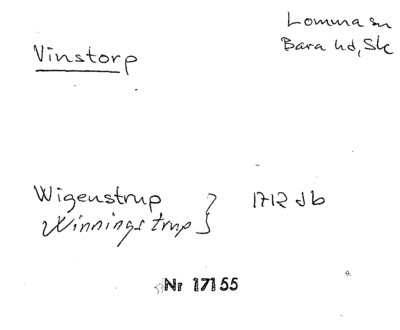 Lomma sn
Bara hd, Sk
Vinstorp
Wigenstrup } 1712 Jb
Winningstrup
Nr 17155